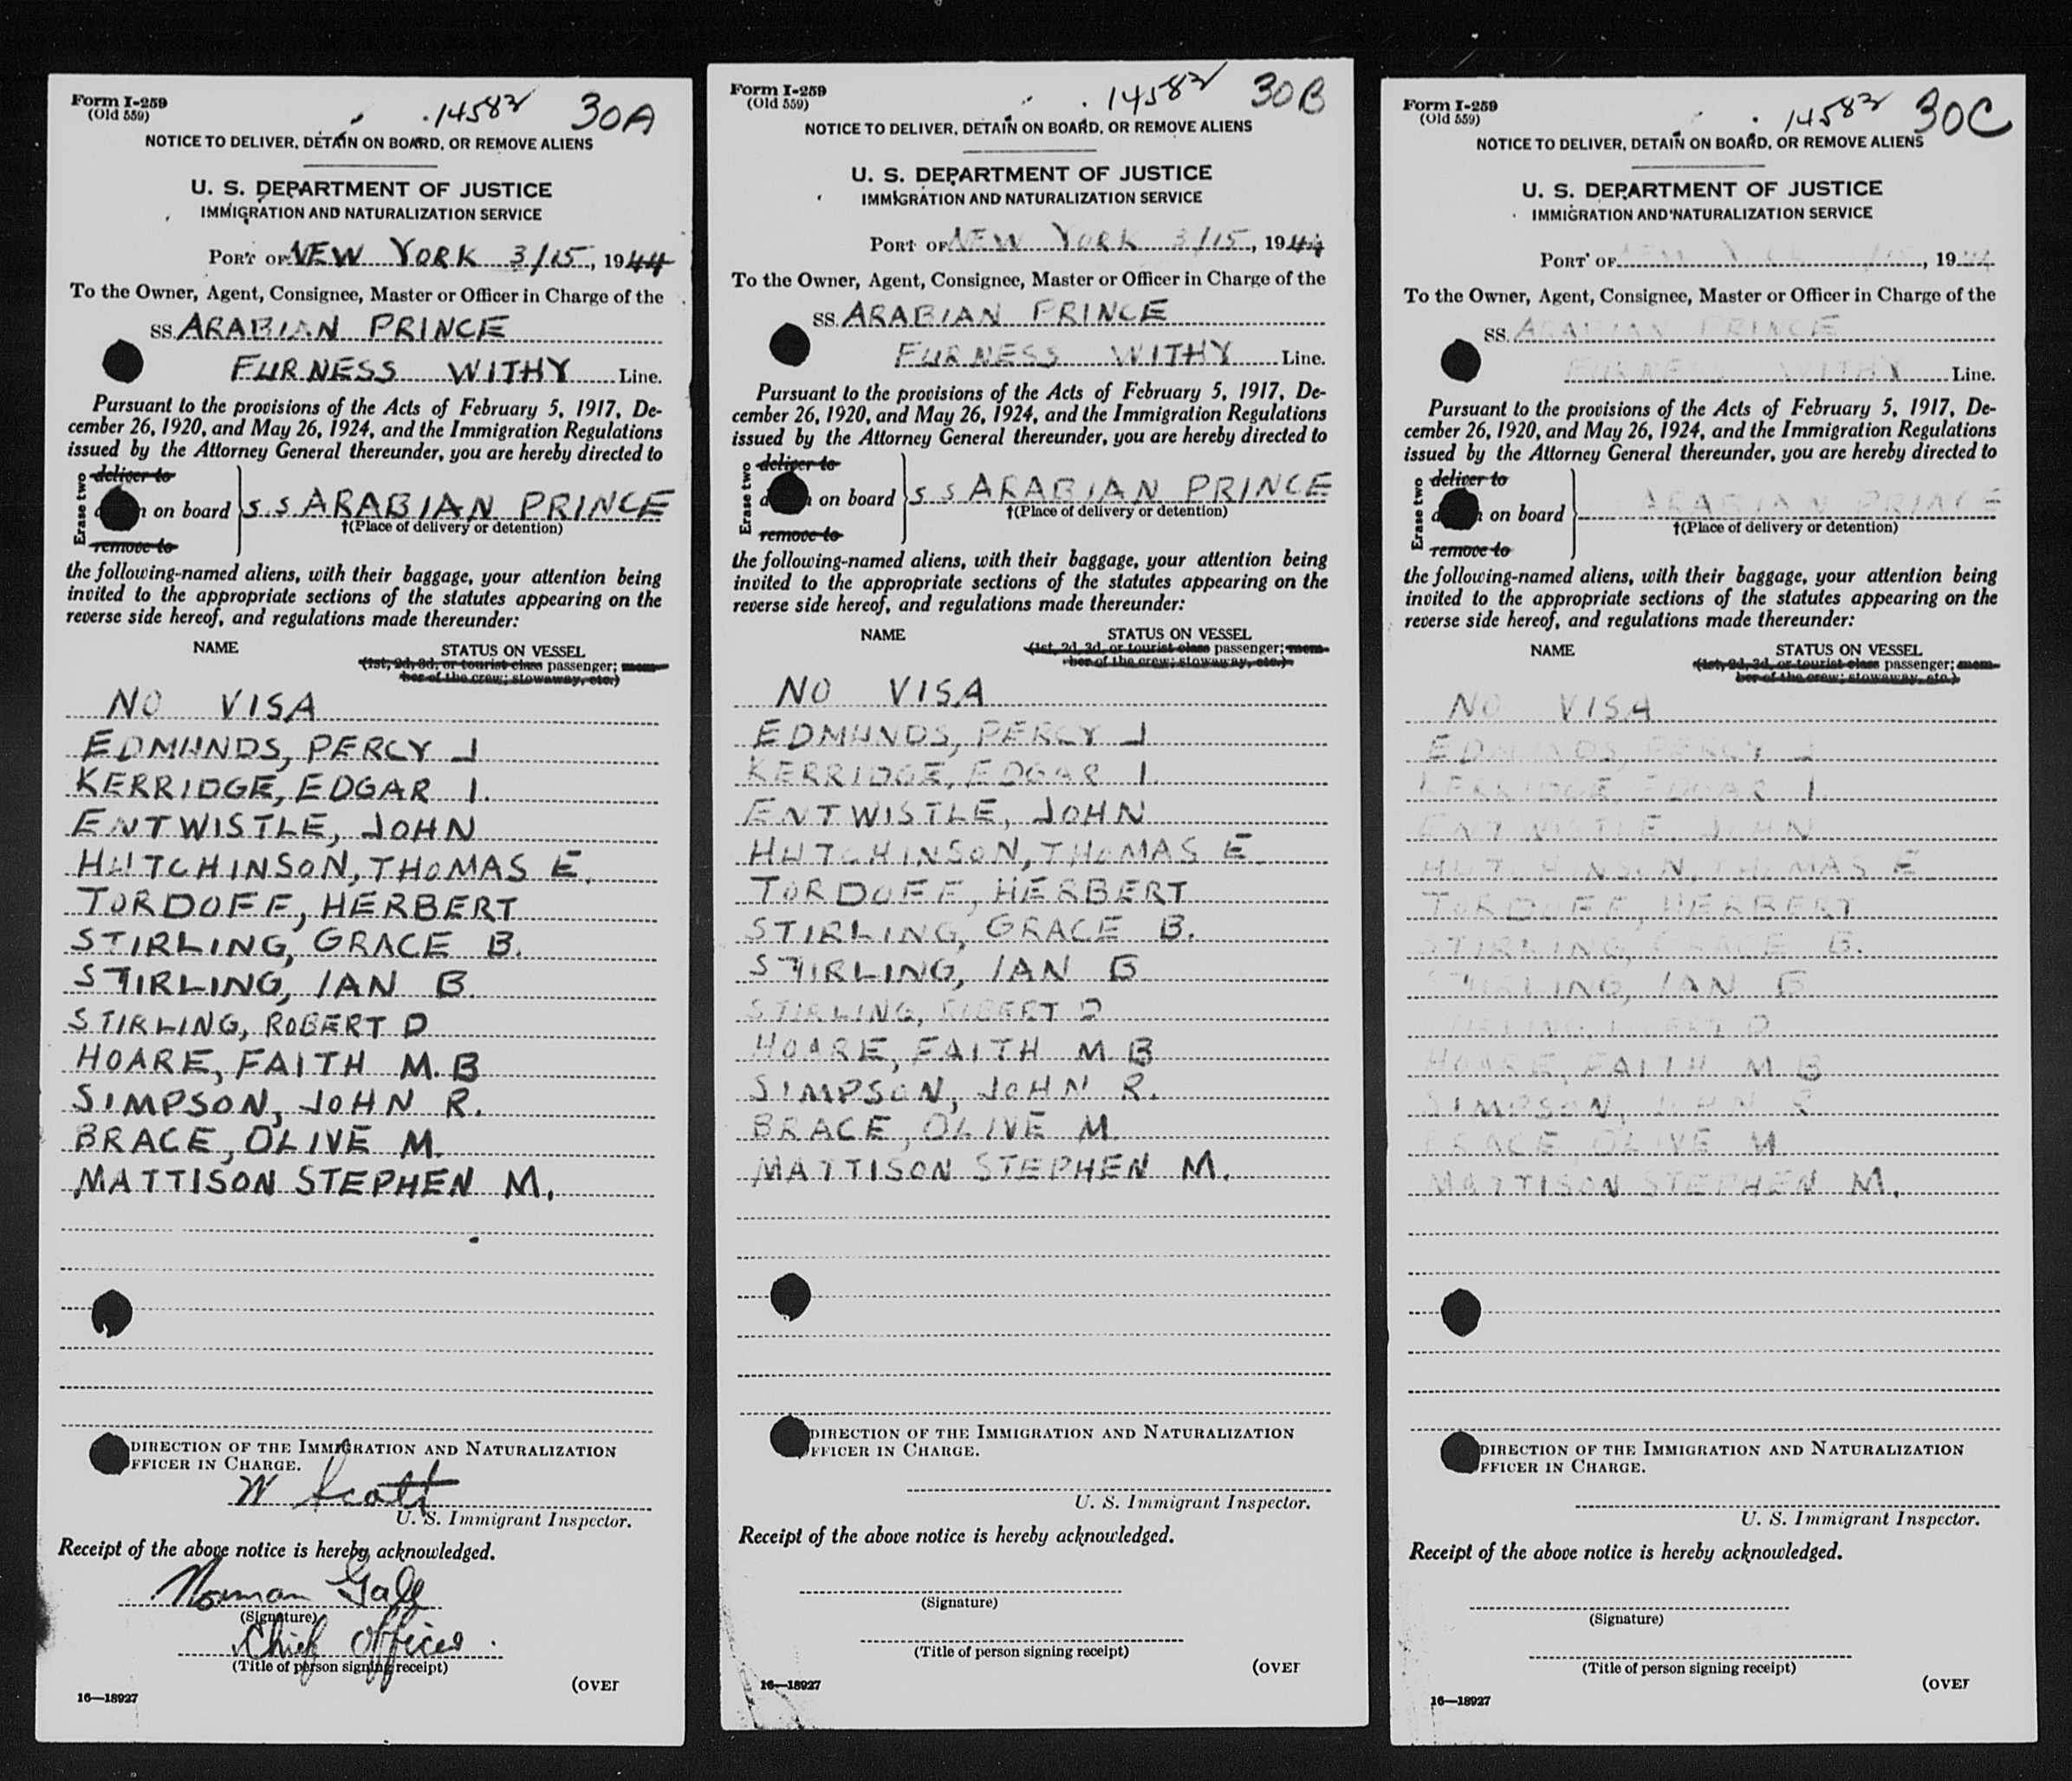 Form I-259
(Old 559)
14582
30A
NOTICE TO DELIVER, DETAIN ON BOARD, OR REMOVE ALIENS
U. S. DEPARTMENT OF JUSTICE
IMMIGRATION AND NATURALIZATION SERVICE
PORT OF NEW YORK 3/15, 1944
To the Owner, Agent, Consignee, Master or Officer in Charge of the
SS. ARABIAN PRINCE
FURNESS WITHY Line.
Pursuant to the provisions of the Acts of February 5, 1917, De-
cember 26, 1920, and May 26, 1924, and the Immigration Regulations
issued by the Attorney General thereunder, you are hereby directed to
Erase two
deliver to
on board S.S ARABIAN PRINCE
†(Place of delivery or detention)
remove to
the following-named aliens, with their baggage, your attention being
invited to the appropriate sections of the statutes appearing on the
reverse side hereof, and regulations made thereunder:
NAME STATUS ON VESSEL
(1st, 2d, 3d, or tourist class passenger; mem-
ber of the crew; stowaway, etc.)
NO VISA
EDMUNDS, PERCY J
KERRIDGE, EDGAR I.
ENTWISTLE, JOHN
HUTCHINSON, THOMAS E.
TORDOFF, HERBERT
STIRLING, GRACE B.
STIRLING, IAN B.
STIRLING, ROBERT D
HOARE, FAITH M. B
SIMPSON, JOHN R.
BRACE, OLIVE M.
MATTISON STEPHEN M.
DIRECTION OF THE IMMIGRATION AND NATURALIZATION
FFICER IN CHARGE.
W Scott
U. S. Immigrant Inspector.
Receipt of the above notice is hereby acknowledged.
Norman Gale
(Signature)
Chief Officer.
(Title of person signing receipt)
(OVER
16—18927
Form I-259
(Old 559)
14582
30B
NOTICE TO DELIVER, DETAIN ON BOARD, OR REMOVE ALIENS
U. S. DEPARTMENT OF JUSTICE
IMMIGRATION AND NATURALIZATION SERVICE
PORT OF NEW YORK 3/15, 1944
To the Owner, Agent, Consignee, Master or Officer in Charge of the
SS. ARABIAN PRINCE
FURNESS WITHY Line.
Pursuant to the provisions of the Acts of February 5, 1917, De-
cember 26, 1920, and May 26, 1924, and the Immigration Regulations
issued by the Attorney General thereunder, you are hereby directed to
Erase two
deliver to
on board S S ARABIAN PRINCE
†(Place of delivery or detention)
remove to
the following-named aliens, with their baggage, your attention being
invited to the appropriate sections of the statutes appearing on the
reverse side hereof, and regulations made thereunder:
NAME STATUS ON VESSEL
(1st, 2d, 3d, or tourist class passenger; mem-
ber of the crew; stowaway, etc.)
NO VISA
EDMUNDS, PERCY J
KERRIDGE, EDGAR I.
ENTWISTLE, JOHN
HUTCHINSON, THOMAS E.
TORDOFF, HERBERT
STIRLING, GRACE B.
STIRLING, IAN B
STIRLING, ROBERT D
HOARE, FAITH M B
SIMPSON, JOHN R.
BRACE, OLIVE M
MATTISON STEPHEN M.
DIRECTION OF THE IMMIGRATION AND NATURALIZATION
FFICER IN CHARGE.
U. S. Immigrant Inspector.
Receipt of the above notice is hereby acknowledged.
(Signature)
(Title of person signing receipt)
(OVER
16—18927
Form I-259
(Old 559)
14582
30C
NOTICE TO DELIVER, DETAIN ON BOARD, OR REMOVE ALIENS
U. S. DEPARTMENT OF JUSTICE
IMMIGRATION AND NATURALIZATION SERVICE
PORT OF NEW YORK /15, 1944
To the Owner, Agent, Consignee, Master or Officer in Charge of the
SS. ARABIAN PRINCE
FURNESS WITHY Line.
Pursuant to the provisions of the Acts of February 5, 1917, De-
cember 26, 1920, and May 26, 1924, and the Immigration Regulations
issued by the Attorney General thereunder, you are hereby directed to
Erase two
deliver to
on board ARABIAN PRINCE
†(Place of delivery or detention)
remove to
the following-named aliens, with their baggage, your attention being
invited to the appropriate sections of the statutes appearing on the
reverse side hereof, and regulations made thereunder:
NAME STATUS ON VESSEL
(1st, 2d, 3d, or tourist class passenger; mem-
ber of the crew; stowaway, etc.)
NO VISA
EDMUNDS, PERCY J
KERRIDGE, EDGAR I
ENTWISTLE, JOHN
HUTCHINSON, THOMAS E
TORDOFF, HERBERT
STIRLING, GRACE B.
STIRLING, IAN B
STIRLING, ROBERT D
HOARE, FAITH M B
SIMPSON, JOHN R
BRACE OLIVE M
MATTISON STEPHEN M.
DIRECTION OF THE IMMIGRATION AND NATURALIZATION
FFICER IN CHARGE.
U. S. Immigrant Inspector.
Receipt of the above notice is hereby acknowledged.
(Signature)
(Title of person signing receipt)
(OVER
16—18927